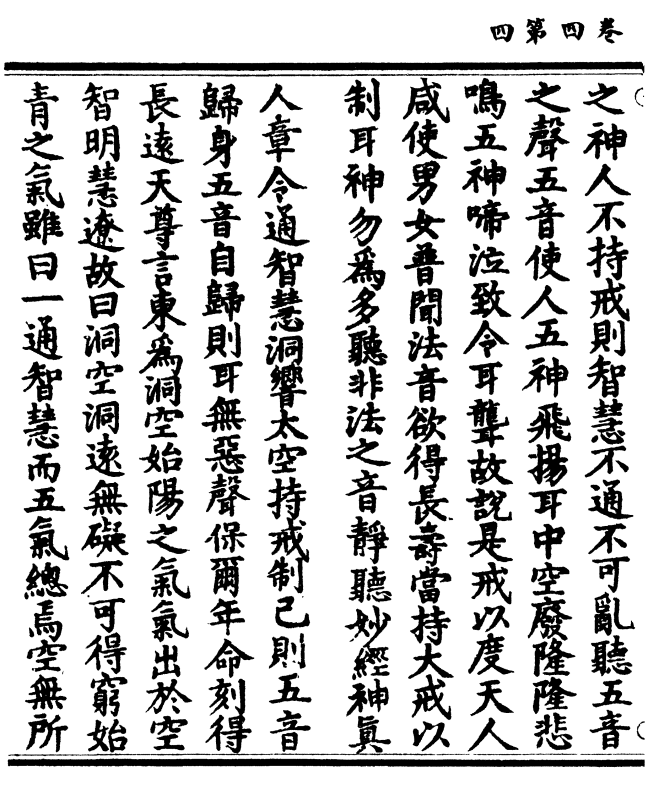 卷四第四
之神人不持戒則智慧不通不可亂聽五音
之聲五音使人五神飛揚耳中空廢隆隆悲
鳴五神啼泣致令耳聾故說是戒以度天人
咸使男女普聞法音欲得長壽當持大戒以
制耳神勿爲多聽非法之音靜聽妙經神真
人章令通智慧洞響太空持戒制己則五音
歸身五音自歸則耳無惡聲保爾年命刻得
長遠天尊言東爲洞空始陽之氣氣出於空
智明慧遼故曰洞空洞遠無礙不可得窮始
青之氣雖曰一通智慧而五氣總焉空無所